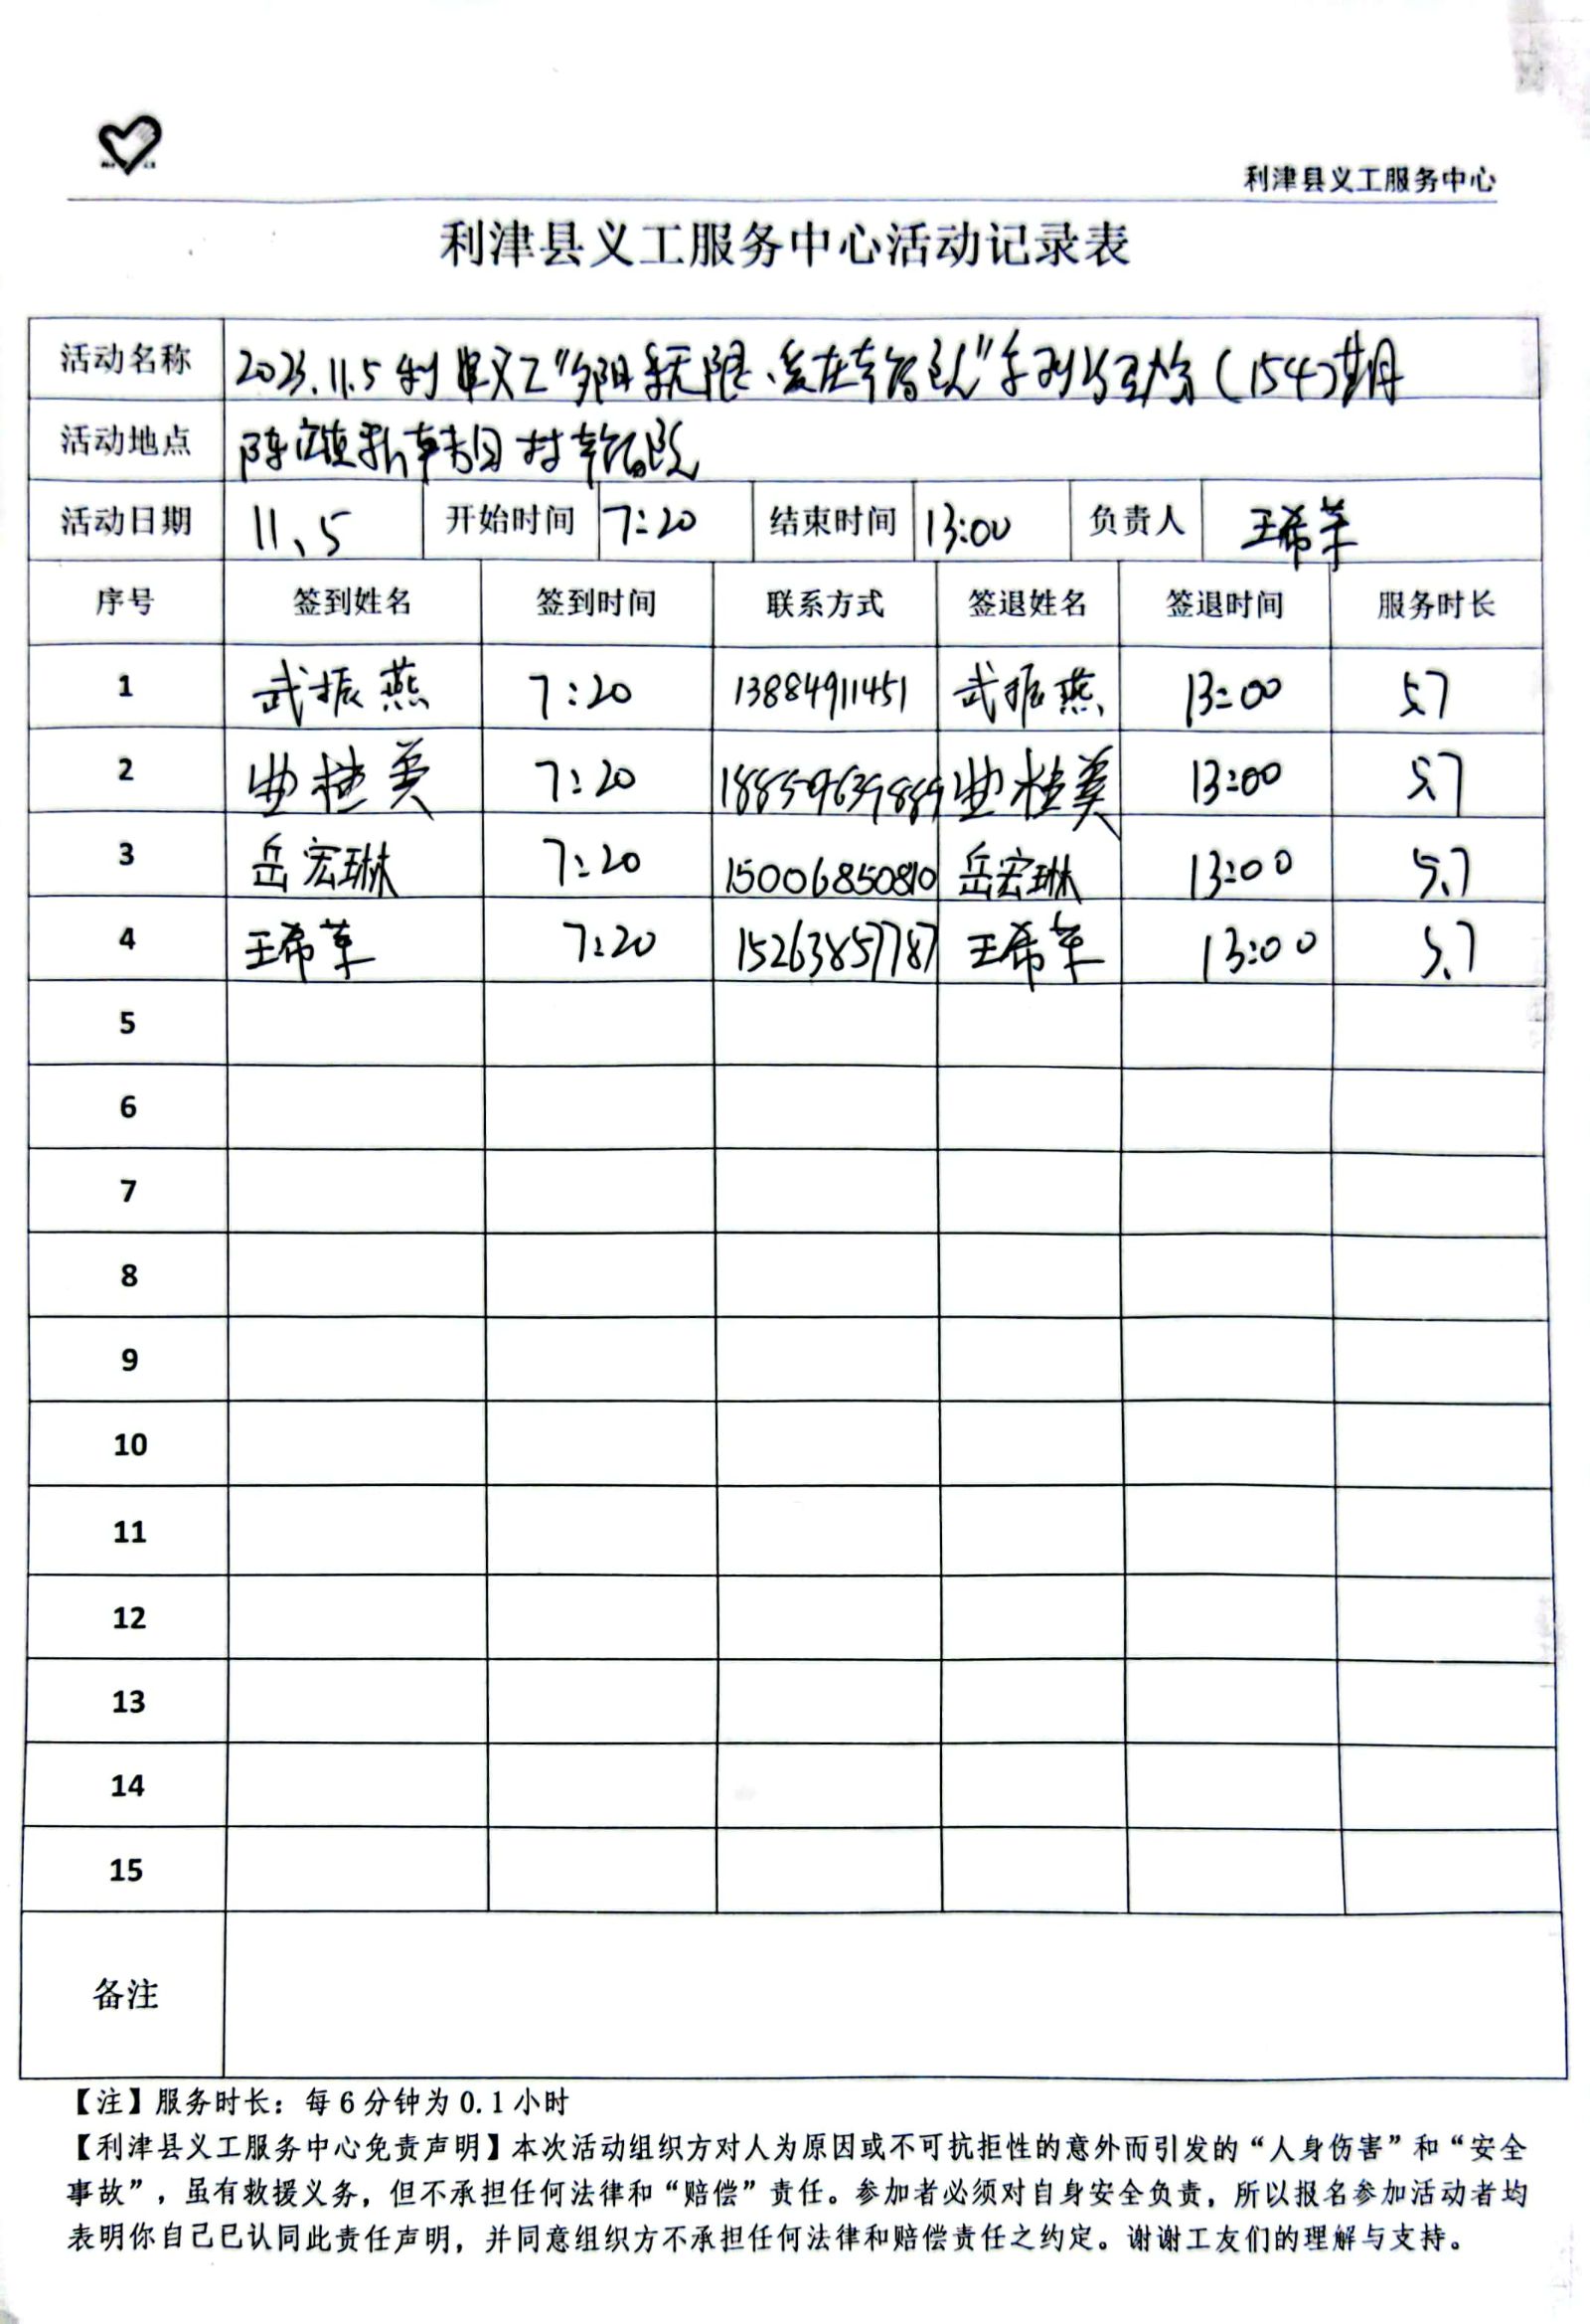 利津县义工服务中心
利津县义工服务中心活动记录表
活动名称 2023.11.5利津义工“夕阳无限、爱在幸福院”系列公益活动(154)期
活动地点 陈庄镇新韩村幸福院
活动日期 11、5 开始时间 7:20 结束时间 13:00 负责人 王希革
序号 签到姓名 签到时间 联系方式 签退姓名 签退时间 服务时长
1 武振燕 7:20 13884911451 武振燕 13:00 5.7
2 曲桂美 7:20 曲桂美 13:00 5.7
3 岳宏琳 7:20 15006850810 岳宏琳 13:00 5.7
4 王希革 7:20 15263857787 王希革 13:00 5.7
5
6
7
8
9
10
11
12
13
14
15
备注
【注】服务时长：每6分钟为0.1小时
【利津县义工服务中心免责声明】本次活动组织方对人为原因或不可抗拒性的意外而引发的“人身伤害”和“安全
事故”，虽有救援义务，但不承担任何法律和“赔偿”责任。参加者必须对自身安全负责，所以报名参加活动者均
表明你自己已认同此责任声明，并同意组织方不承担任何法律和赔偿责任之约定。谢谢工友们的理解与支持。